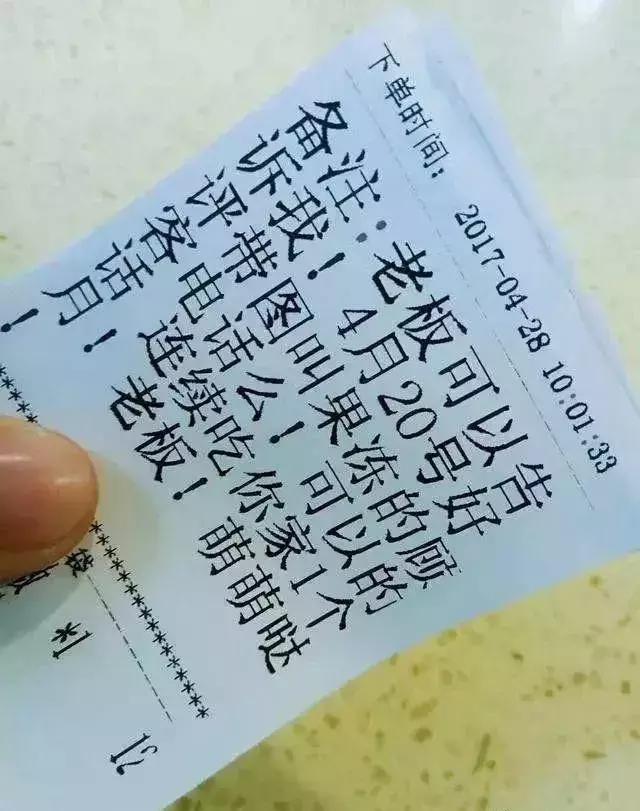 下单时间: 2017-04-28 10:01:33
备注:老板可以告
诉我!4月20号好
评带图叫果冻的顾
客电话么!可以的
话连续吃你家1个
月!老板!萌萌哒
!
*1
12